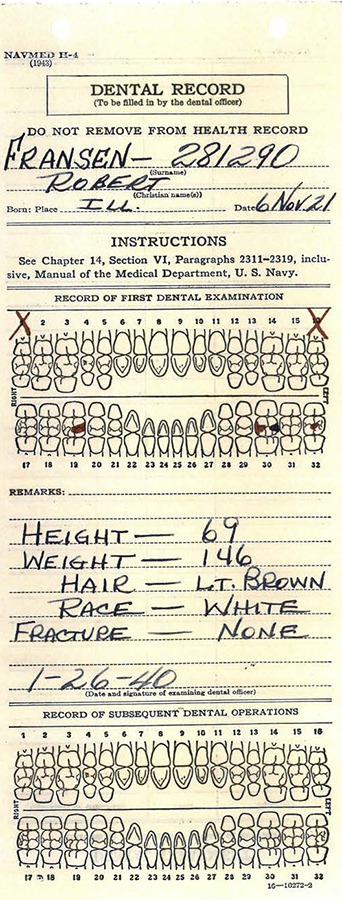 NAVMED H-4
(1943)
DENTAL RECORD
(To be filled in by the dental officer)
DO NOT REMOVE FROM HEALTH RECORD
FRANSEN— 281290
(Surname)
ROBERT
(Christian name(s))
Born: Place ILL. Date 6 Nov 21
INSTRUCTIONS
See Chapter 14, Section VI, Paragraphs 2311–2319, inclu-
sive, Manual of the Medical Department, U. S. Navy.
RECORD OF FIRST DENTAL EXAMINATION
2 3 4 5 6 7 8 9 10 11 12 13 14 15
RIGHT LEFT
17 18 19 20 21 22 23 24 25 26 27 28 29 30 31 32
REMARKS:
HEIGHT — 69
WEIGHT — 146
HAIR — LT. BROWN
RACE — WHITE
FRACTURE — NONE
1-26-40
(Date and signature of examining dental officer)
RECORD OF SUBSEQUENT DENTAL OPERATIONS
1 2 3 4 5 6 7 8 9 10 11 12 13 14 15 16
RIGHT LEFT
17 18 19 20 21 22 23 24 25 26 27 28 29 30 31 32
16—10272-2